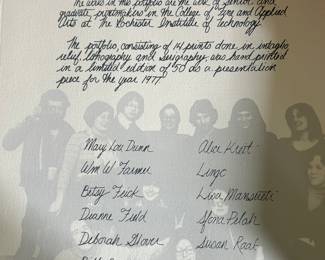 The works in this portfolio are the work of senior and
graduate printmakers in the College of Fine and Applied
Arts at the Rochester Institute of Technology.
The portfolio, consisting of 14 prints done in intaglio,
relief, lithography and serigraphy, was hand printed
in a limited edition of 50 as a presentation
piece for the year 1977.
Mary Lou Dunn
Wm W Farmer
Betsy Feick
Dianne Field
Deborah Glover
Alex Krot
Linzo
Lisa
Mona Pelah
Susan Raab